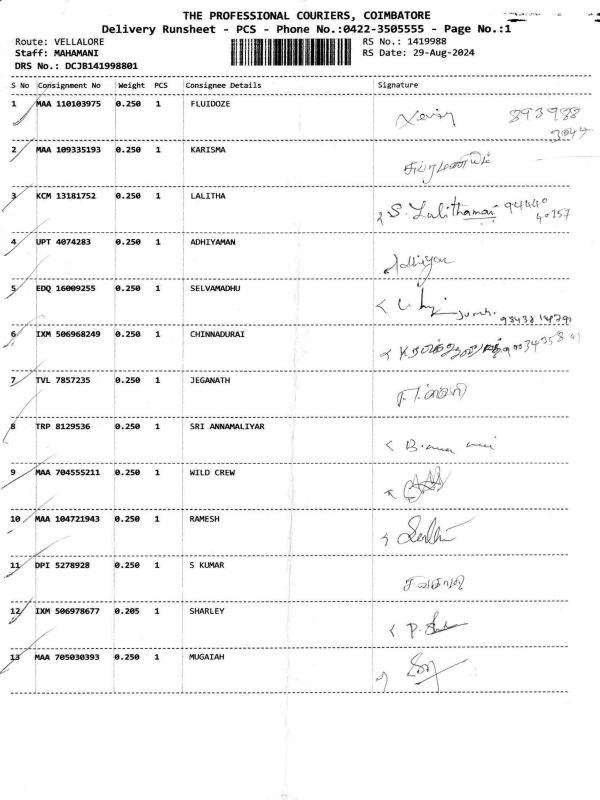 THE PROFESSIONAL COURIERS, COIMBATORE
Delivery Runsheet - PCS - Phone No.:0422-3505555 - Page No.:1
Route: VELLALORE RS No.: 1419988
Staff: MAHAMANI RS Date: 29-Aug-2024
DRS No.: DCJB141998801
S No Consignment No Weight PCS Consignee Details Signature
1 MAA 110103975 0.250 1 FLUIDOZE 893988
3044
2 MAA 109335193 0.250 1 KARISMA
3 KCM 13181752 0.250 1 LALITHA S. Lalithamani 94440
40157
4 UPT 4074283 0.250 1 ADHIYAMAN
5 EDQ 16009255 0.250 1 SELVAMADHU
6 IXM 506968249 0.250 1 CHINNADURAI
7 TVL 7857235 0.250 1 JEGANATH
8 TRP 8129536 0.250 1 SRI ANNAMALIYAR
9 MAA 704555211 0.250 1 WILD CREW
10 MAA 104721943 0.250 1 RAMESH
11 DPI 5278928 0.250 1 S KUMAR
12 IXM 506978677 0.205 1 SHARLEY
13 MAA 705030393 0.250 1 MUGAIAH